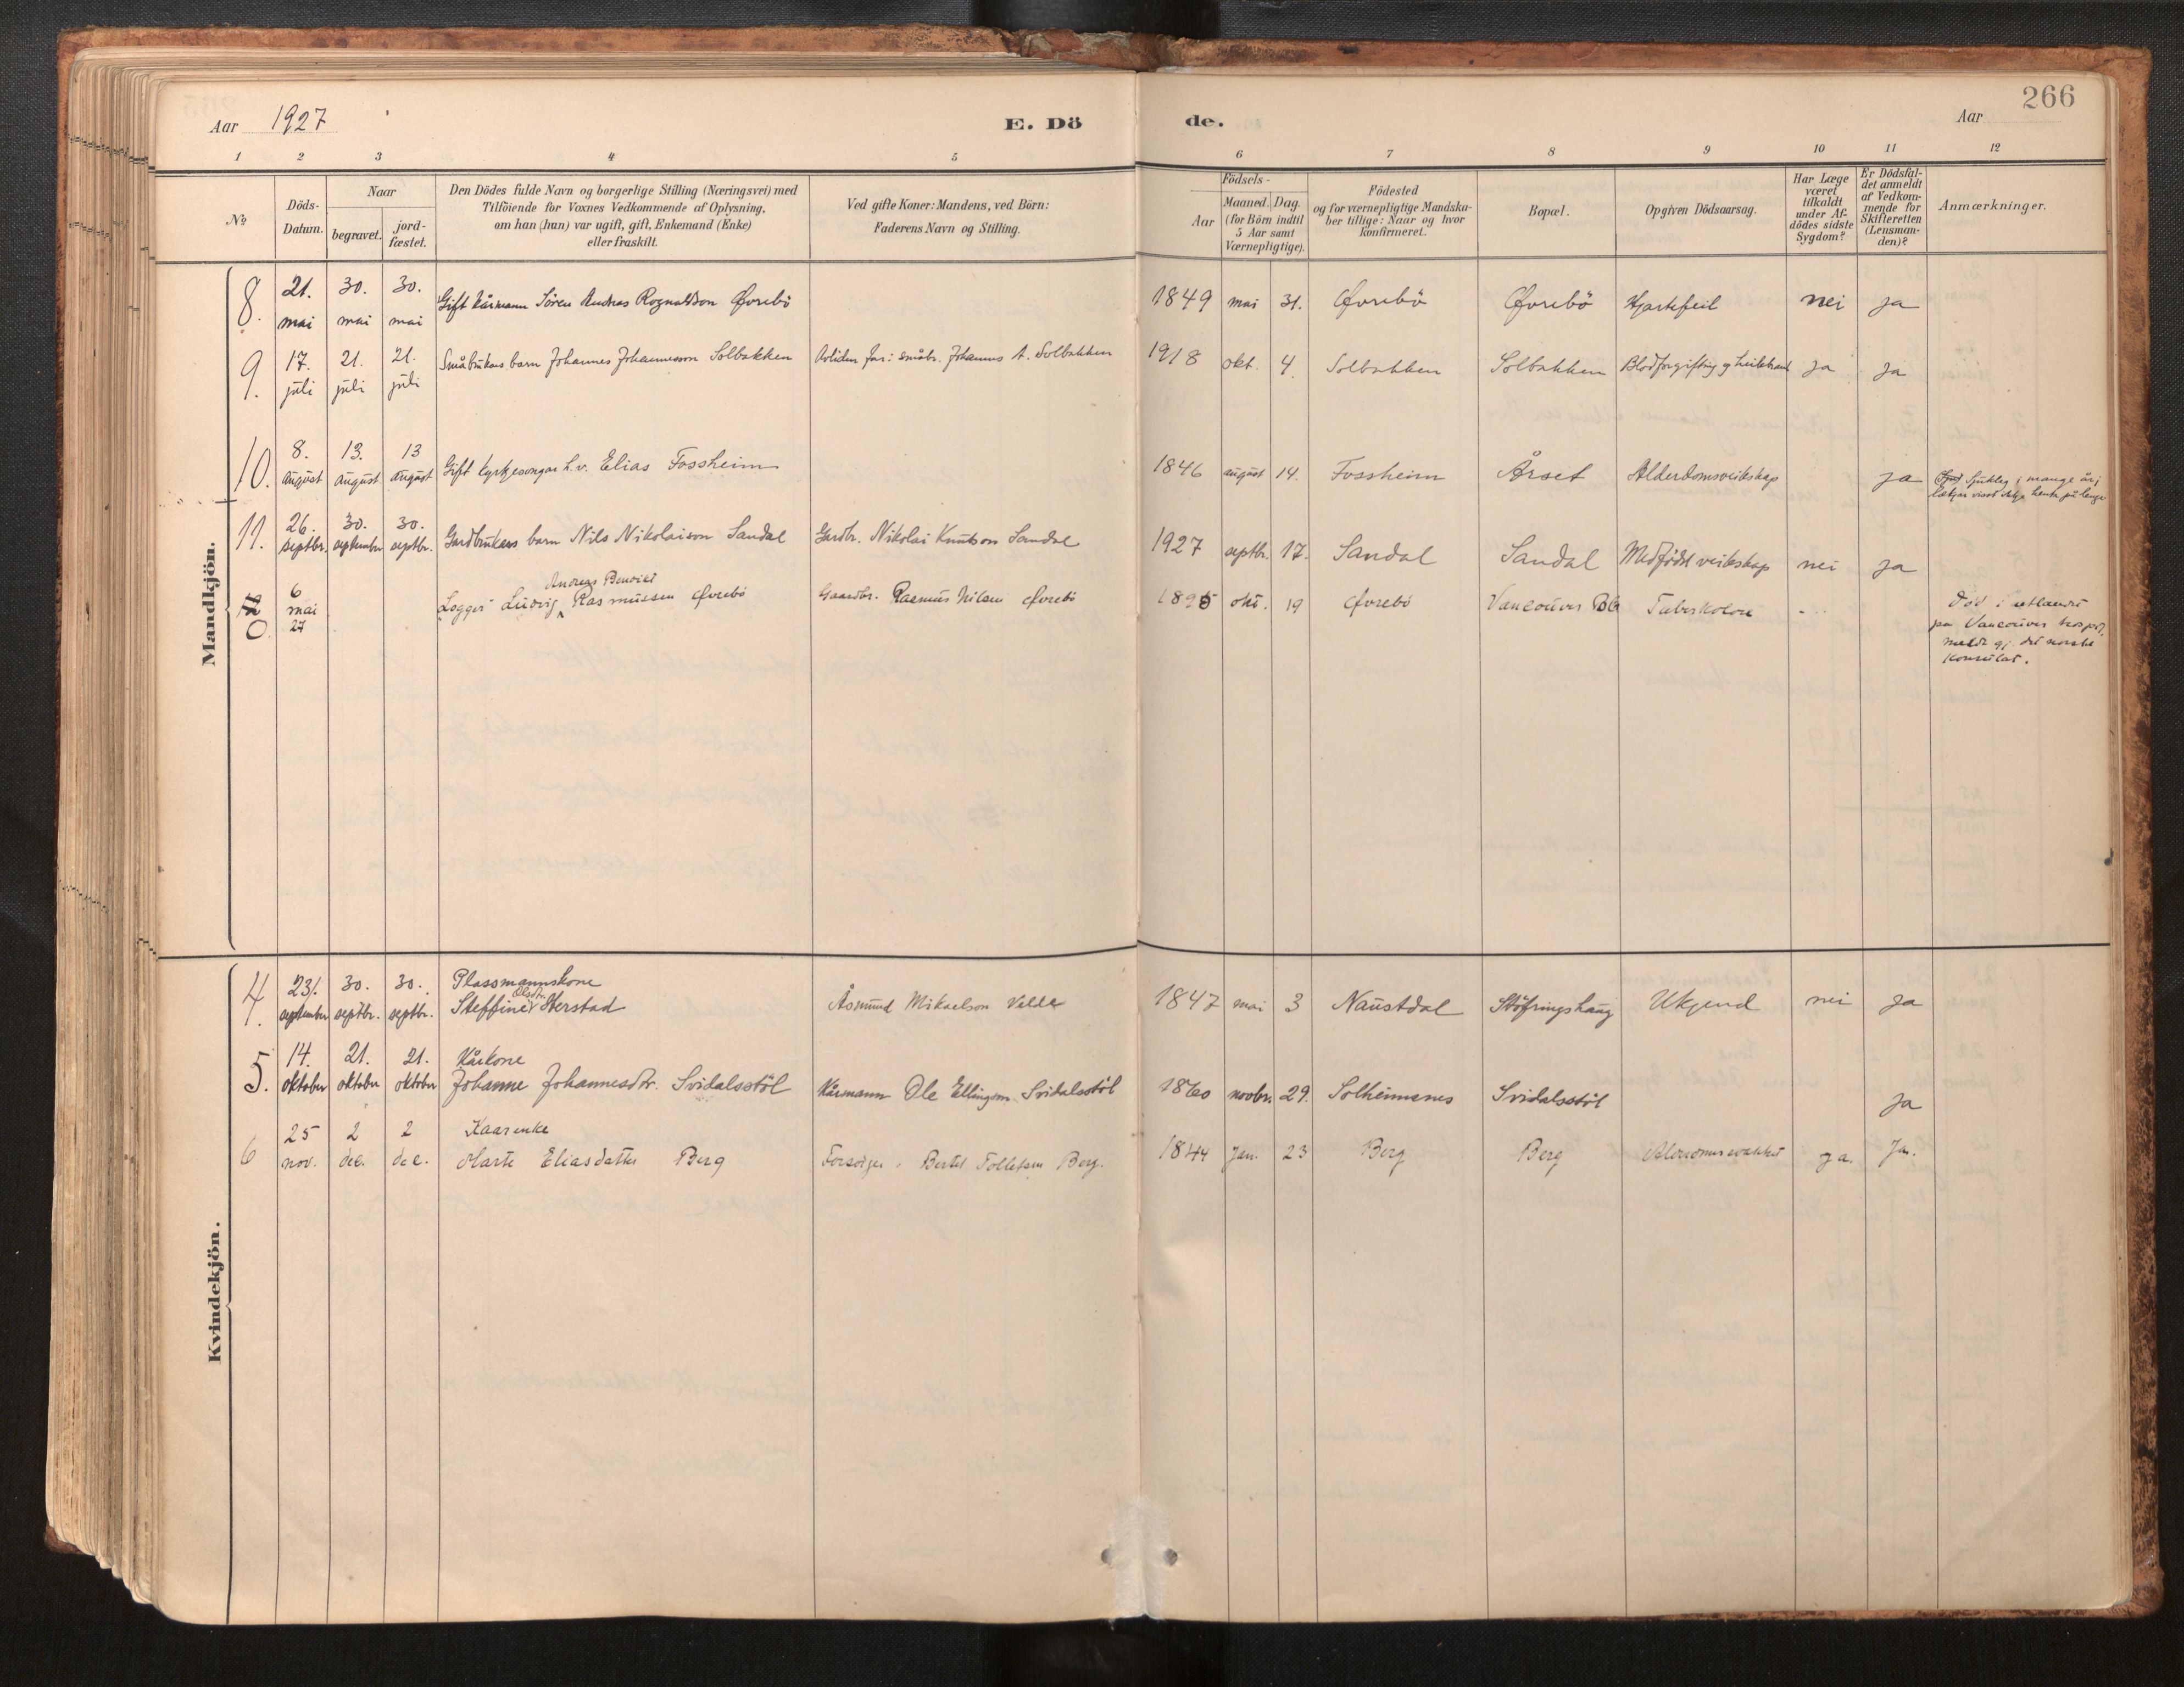 266
Aar 1927
E. Dö
de.
Aar
1 2 3 4 5 6 7 8 9 10 11 12
No
Döds-Datum.
Naar
begravet.
jord-fæstet.
Den Dödes fulde Navn og borgerlige Stilling (Næringsvei) med
Tilföiende for Voxnes Vedkommende af Oplysning,
om han (hun) var ugift, gift, Enkemand (Enke)
eller fraskilt.
Ved gifte Koner: Mandens, ved Börn:
Faderens Navn og Stilling.
Födsels-
Aar
Maaned. Dag.
(for Börn indtil
5 Aar samt
Værnepligtige).
Födested
og for værnepligtige Mandska-
ber tillige: Naar og hvor
konfirmeret.
Bopæl.
Opgiven Dödsaarsag.
Har Læge
været
tilkaldt
under Af-
dödes sidste
Sygdom?
Er Dödsfal-
det anmeldt
af Vedkom-
mende for
Skifteretten
(Lensman-
den)?
Anmærkninger.
Mandkjön.
8. 21. mai 30. mai 30. mai Gift kårmann Sören Andreas Rognaldson Øvrebö 1849 mai 31. Øvrebö Øvrebö Hjartefeil nei ja
9. 17. juli 21. juli 21. juli Småbrukars barn Johannes Johannesson Solbakken Avliden far: småbr. Johannes A. Solbakken 1918 okt. 4. Solbakken Solbakken Blodforgiftnig og ja ja
10. 8. august 13. august 13 august Gift kyrkjesongar h.v. Elias Fossheim 1846 august 14. Fossheim Årset Alderdomsveikskap ja Sjukleg i mange år;
11. 26. septbr. 30. september 30. septbr. Gardbrukars barn Nils Nikolaison Sandal Gardbr. Nikolai Knutson Sandal 1927 septbr. 17. Sandal Sandal Medfödt veikskap nei ja
0 6 mai 27 Logger Ludvig Andreas Benoікt Rasmussen Øvrebö Gaardbr. Rasmus Nilsen Øvrebö 1895 okt. 19 Øvrebö Vancouver Tuberkolose - Död i utlandet
paa Vancouver hospit.
meldt gj. det norske
Konsulat.
Kvindekjön.
4. 23. september 30. septbr. 30. septbr. Plassmannskone
Steffine Olsdtr. Herstad Åsmund Mikaelson Velde 1847 mai 3 Naustdal Stöfringshaug Ukjend nei ja
5. 14. oktober 21. oktober 21. oktober Kårkone
Johanne Johannesdtr. Svidalsstöl Kårmann Ole Ellingson Svidalsstöl 1860 novbr. 29. Solheimsnes Svidalsstöl ja
6 25 nov. 2 dec. 2 dec. Kaarenke
Marte Eliasdatter Berg Forsörger: Bertel Tollefsen Berg. 1844 Jan. 23 Berg Berg Alderdomssvakhet ja. Ja.